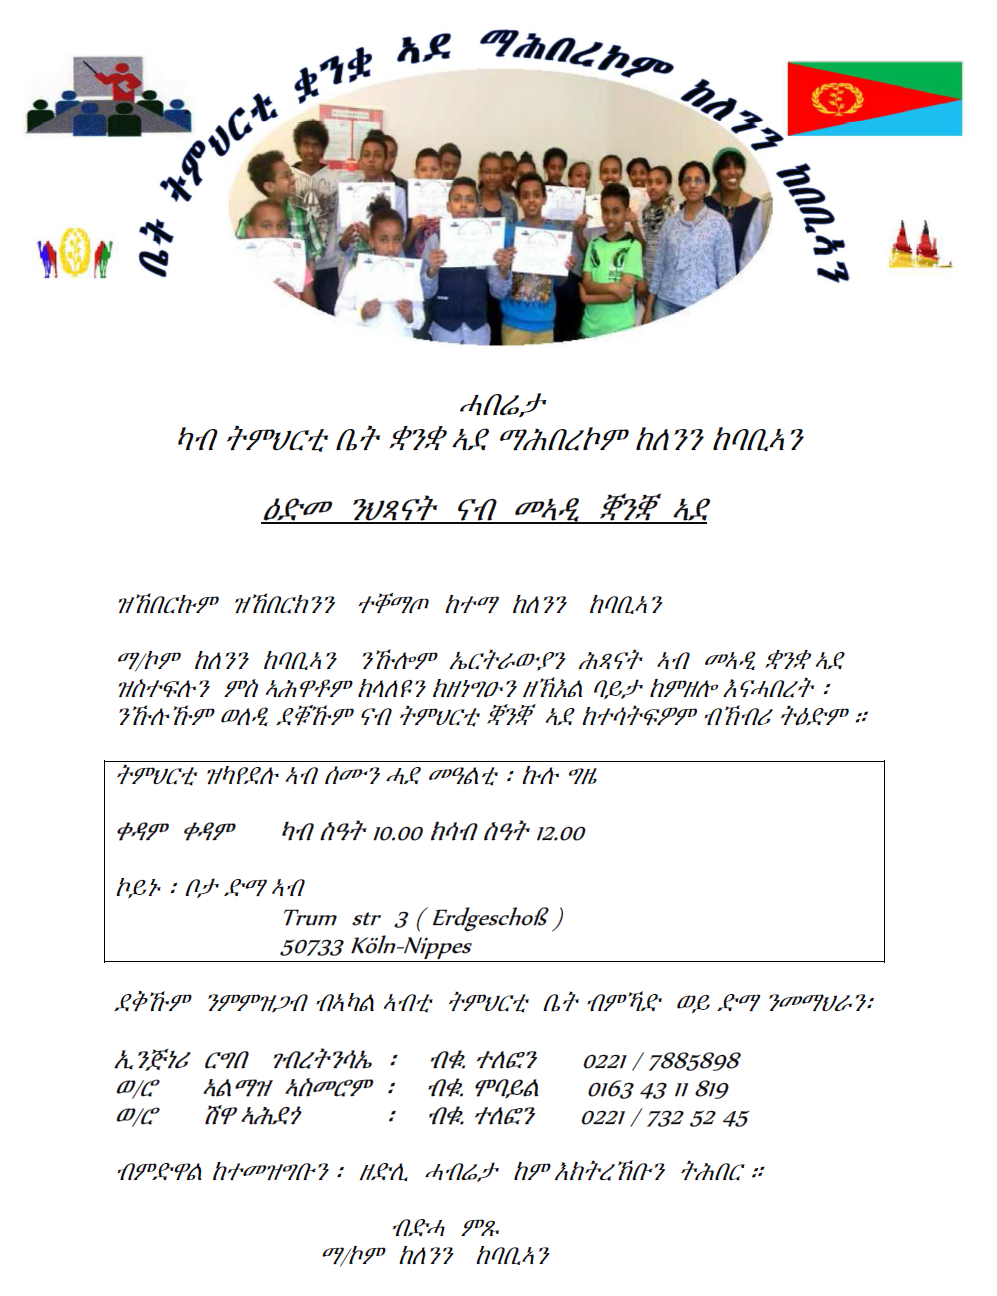 ቤት ትምህርቲ ቋንቋ ኣደ ማሕበረኮም ከለንን ከበቢኣን
ሓበሬታ
ካብ ትምህርቲ ቤት ቋንቋ ኣደ ማሕበረኮም ከለንን ከባቢኣን
ዕድመ ንህጻናት ናብ መኣዲ ቛንቛ ኣደ
ዝኸበርኩም ዝኸበርክንን ተቐማጦ ከተማ ከለንን ከባቢኣን
ማ/ኮም ከለንን ከባቢኣን ንኹሎም ኤርትራውያን ሕጻናት ኣብ መኣዲ ቋንቋ ኣደ
ዝስተፍሉን ምስ ኣሕዋቶም ክላለዩን ክዘነግዑን ዘኽእል ባይታ ከምዘሎ እናሓበረት ፡
ንኹሉኹም ወለዲ ደቁኹም ናብ ትምህርቲ ቛንቛ ኣደ ከተሳትፍዎም ብኽብሪ ትዕድም ።
ትምህርቲ ዝካየደሉ ኣብ ሰሙን ሓደ መዓልቲ ፡ ኩሉ ግዜ
ቀዳም ቀዳም ካብ ስዓት 10.00 ክሳብ ስዓት 12.00
ኮይኑ ፡ ቦታ ድማ ኣብ
Trum str 3 ( Erdgeschoß )
50733 Köln-Nippes
ደቅኹም ንምምዝጋብ ብኣካል ኣብቲ ትምህርቲ ቤት ብምኻድ ወይ ድማ ንመማህራን፡
ኢንጅነሪ ርግበ ገብረትንሳኤ ፡ ብቁ. ተለፎን 0221 / 7885898
ወ/ሮ ኣልማዝ ኣስመሮም ፡ ብቁ. ሞባይል 0163 43 11 819
ወ/ሮ ሸዋ ኣሕደጎ ፡ ብቁ. ተለፎን 0221 / 732 52 45
ብምድዋል ከተመዝግቡን ፡ ዘድሊ ሓብሬታ ከም እክትረኽቡን ትሕበር ።
ብድሓ ምጹ
ማ/ኮም ከለንን ከባቢኣን